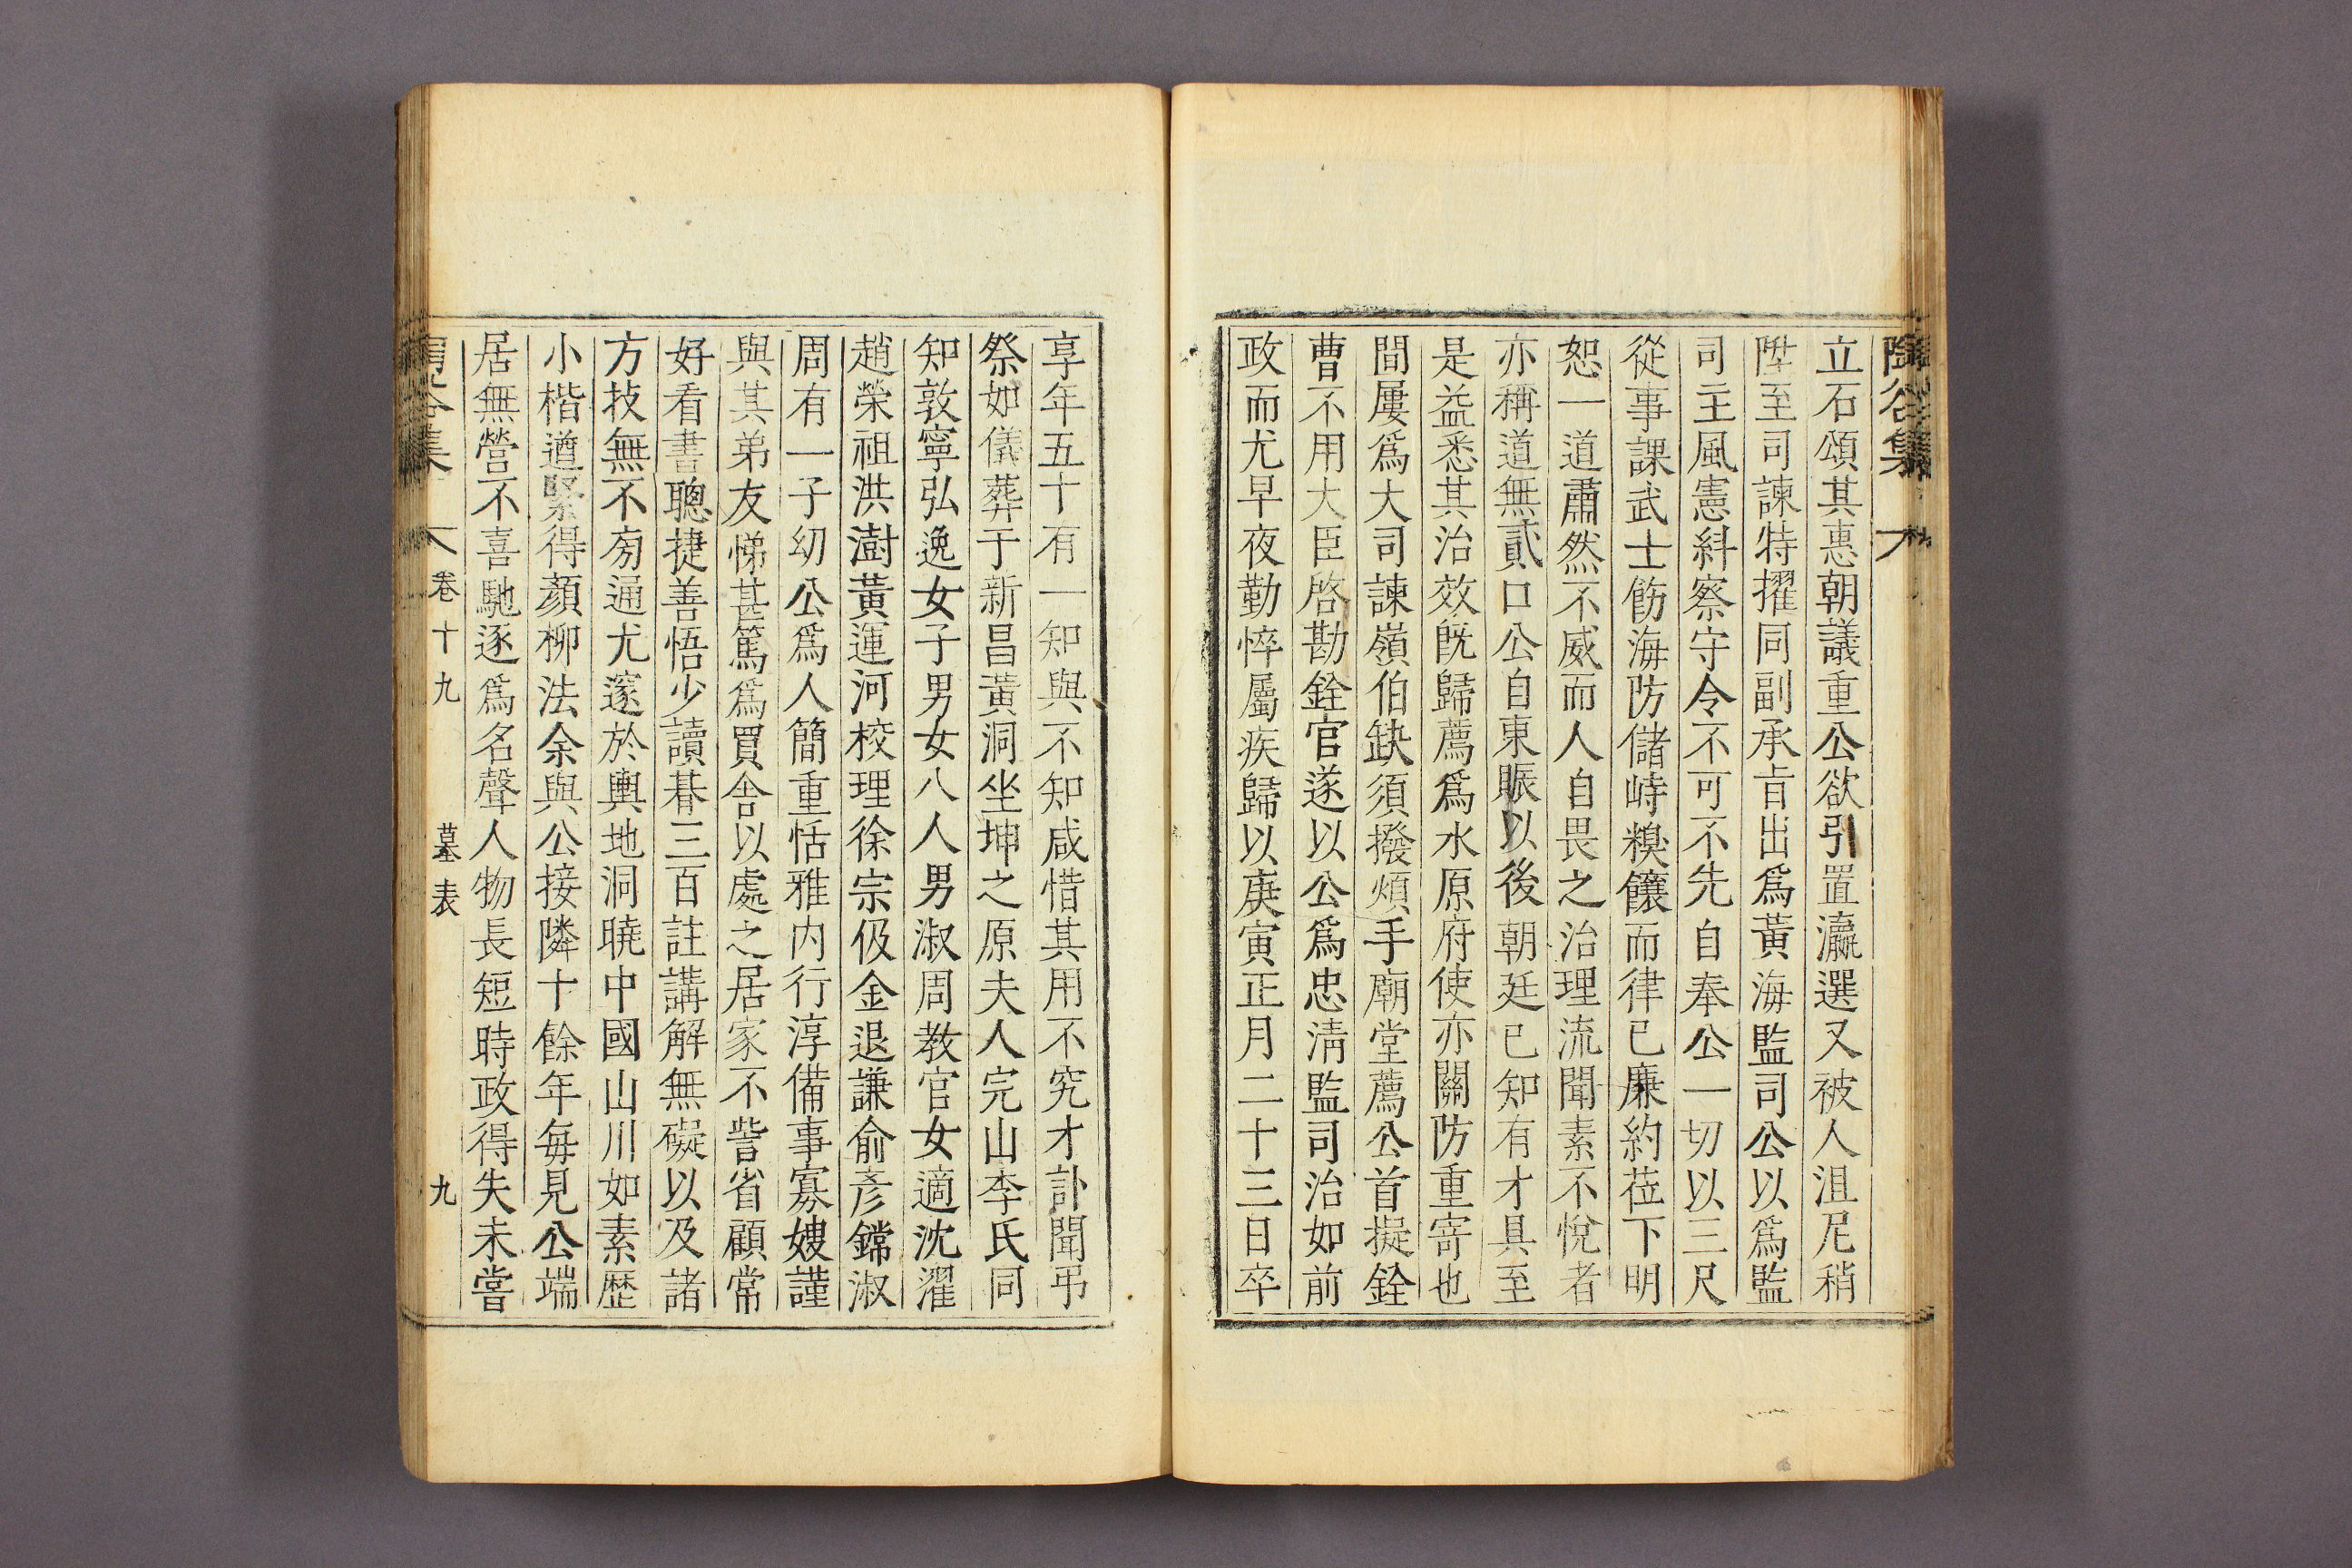 陶谷集
立石頌其惠朝議重公欲引置瀛選又被人沮尼稍
陞至司諫特擢同副承旨出爲黃海監司公以爲監
司主風憲糾察守令不可不先自奉公一切以三尺
從事課武士飭海防儲峙糗饟而律己廉約莅下明
恕一道肅然不威而人自畏之治理流聞素不悅者
亦稱道無貳口公自東賑以後朝廷已知有才具至
是益悉其治效旣歸薦爲水原府使亦關防重寄也
間屢爲大司諫嶺伯缺須撥煩手廟堂薦公首擬銓
曹不用大臣啓勘銓官遂以公爲忠淸監司治如前
政而尤早夜勤悴屬疾歸以庚寅正月二十三日卒
享年五十有一知與不知咸惜其用不究才訃聞弔
祭如儀葬于新昌黃洞坐坤之原夫人完山李氏同
知敦寧弘逸女子男女八人男淑周教官女適沈濯
趙榮祖洪澍黃運河校理徐宗伋金退謙俞彦鏛淑
周有一子幼公爲人簡重恬雅內行淳備事寡嫂謹
與其弟友悌甚篤爲買舍以處之居家不訾省顧常
好看書聰捷善悟少讀朞三百註講解無礙以及諸
方技無不旁通尤邃於輿地洞曉中國山川如素歷
小楷遒緊得顏柳法余與公接隣十餘年每見公端
居無營不喜馳逐爲名聲人物長短時政得失未嘗
卷十九 墓表 九